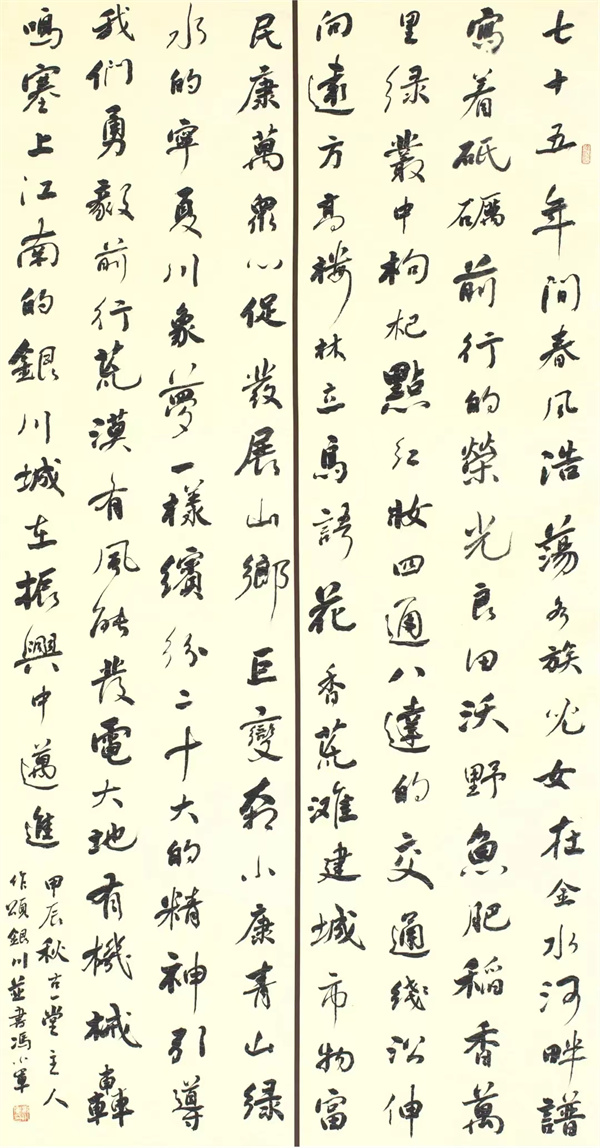 七十五年間春風浩蕩各族兒女在金水河畔譜
寫着砥礪前行的榮光良田沃野魚肥稻香萬
里绿叢中枸杞點红妝四通八達的交通綫沿伸
向遠方高樓林立鳥語花香荒滩建城市物富
民康萬衆心促發展山鄉巨變奔小康青山緑
水的寧夏川象夢一樣缤纷二十大的精神引導
我們勇毅前行荒漠有風能發電大地有機械轟
鳴塞上江南的銀川城在振興中邁進
甲辰秋古一堂主人
作頌銀川並書馮小軍